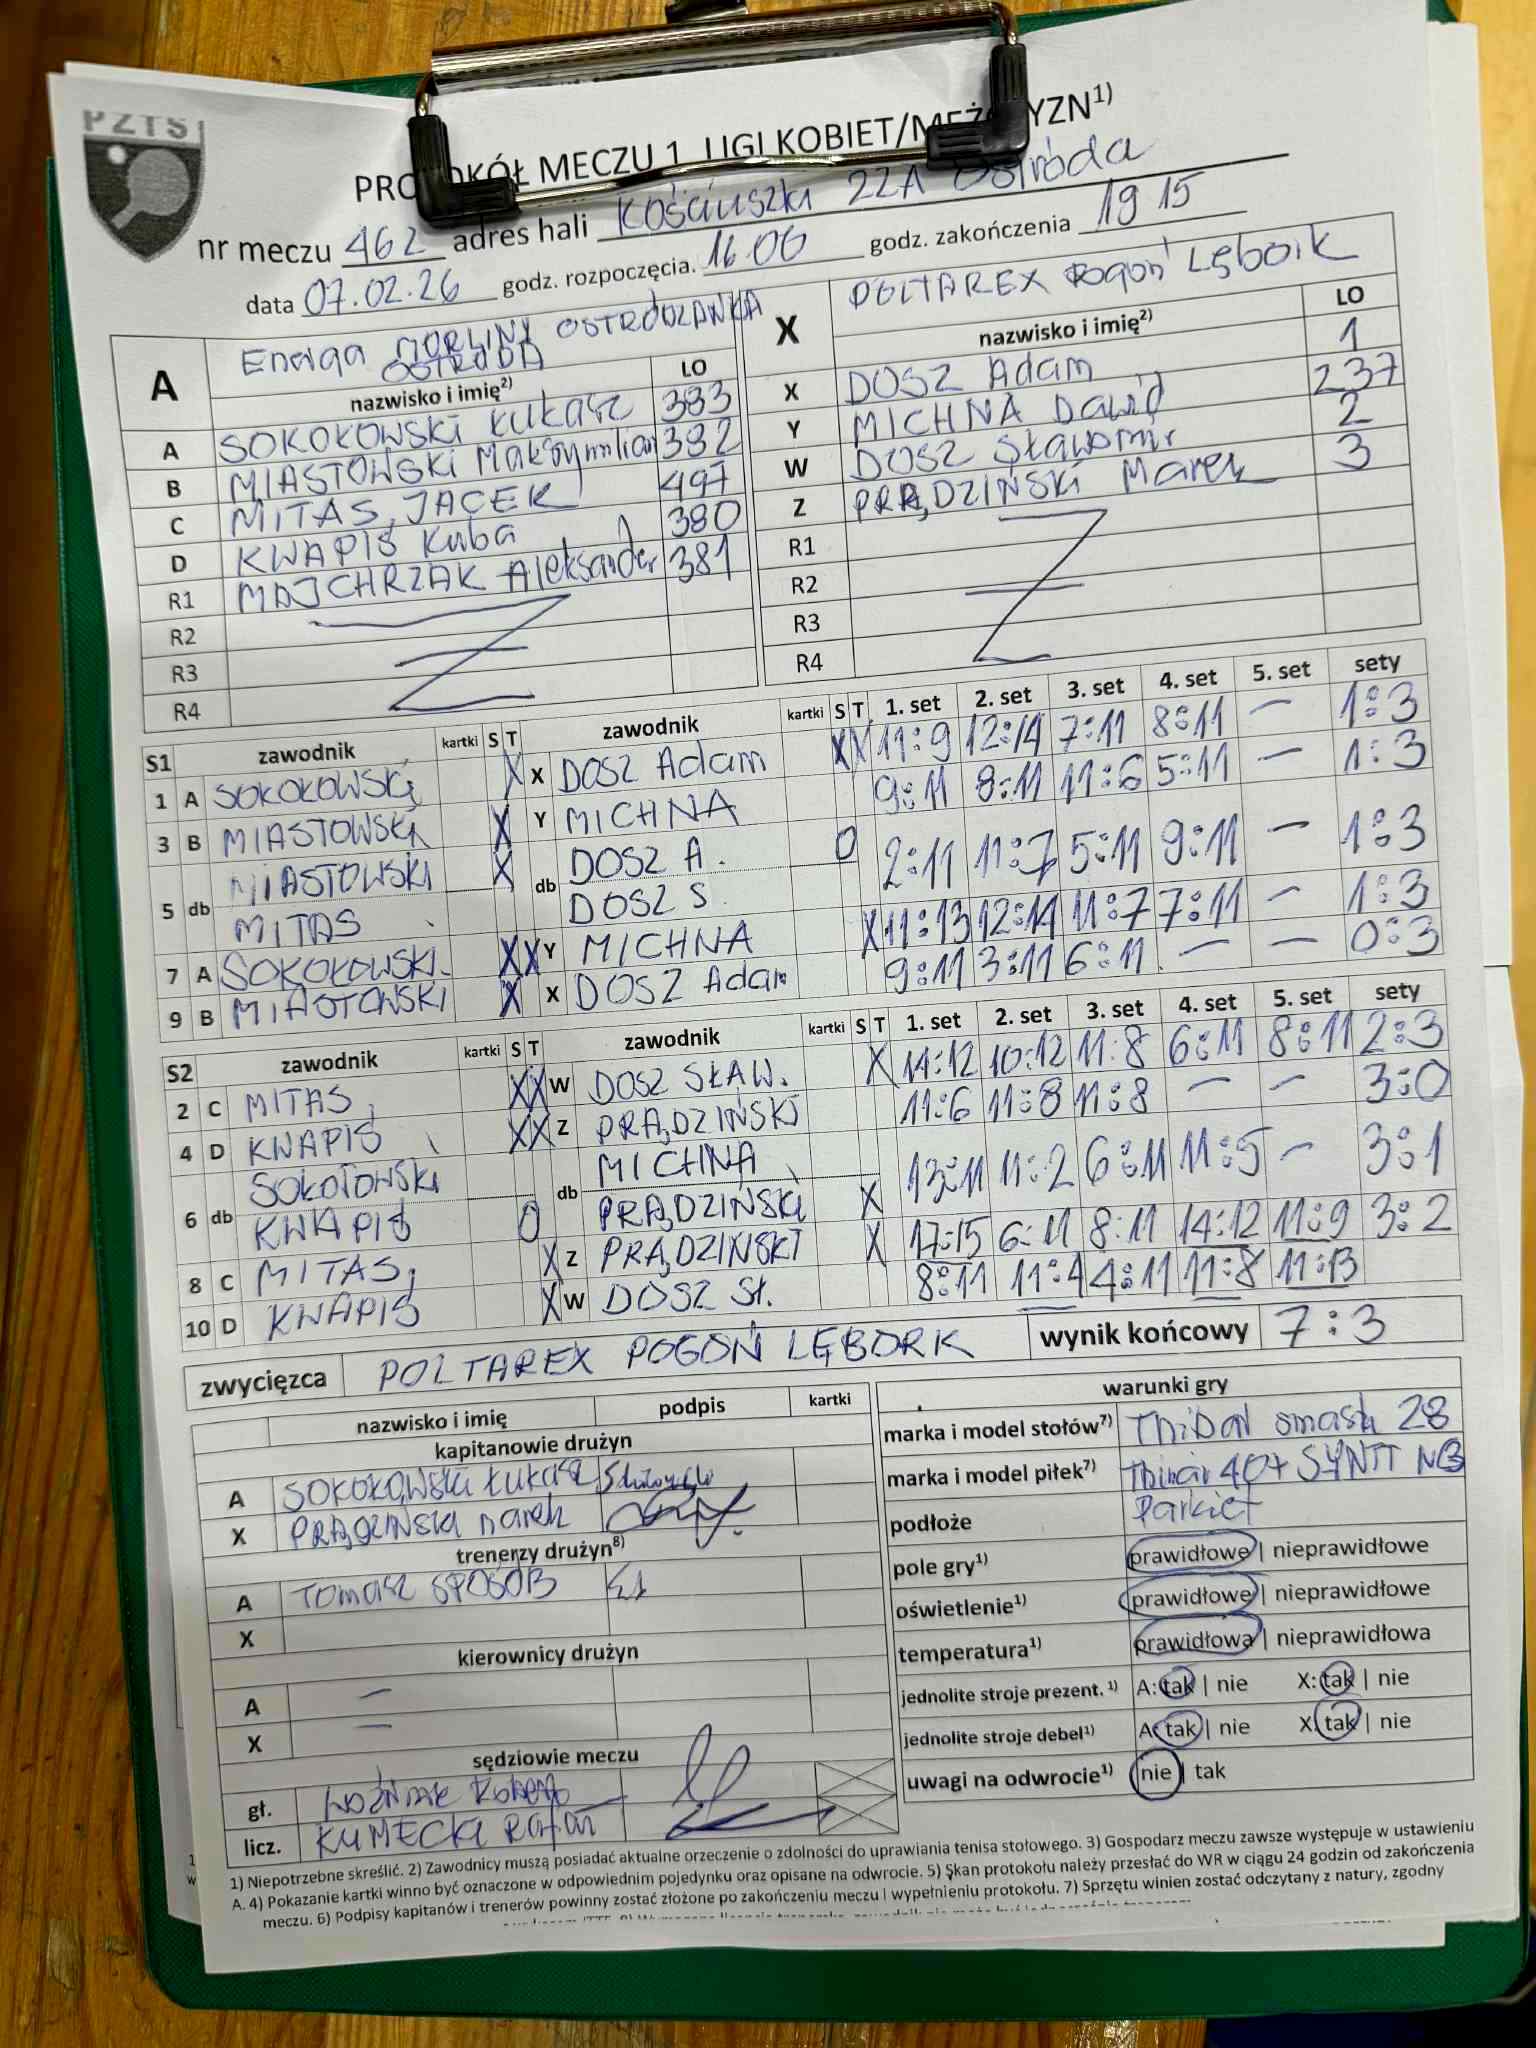 PZTS
PROTOKÓŁ MECZU 1. LIGI KOBIET/MĘŻCZYZN1)
nr meczu 462 adres hali Kościuszki 22A Ostróda
data 07.02.26 godz. rozpoczęcia. 16.00 godz. zakończenia 19 15
A Energa MORLINY OSTRÓDZIANKA OSTRÓDA
nazwisko i imię2) LO
A SOKOŁOWSKI Łukasz 383
B MIASTOWSKI Maksymilian 382
C MITAS JACEK 497
D KWAPIŚ Kuba 380
R1 MAJCHRZAK Aleksander 381
R2
R3
R4
X POLTAREX Pogoń Lębork
nazwisko i imię2) LO
X DOSZ Adam 1
Y MICHNA Dawid 237
W DOSZ Sławomir 2
Z PRĄDZIŃSKI Marek 3
R1
R2
R3
R4
S1 zawodnik kartki S T zawodnik kartki S T 1. set 2. set 3. set 4. set 5. set sety
1 A SOKOŁOWSKI X X DOSZ Adam X X 11:9 12:14 7:11 8:11 – 1:3
3 B MIASTOWSKI X Y MICHNA 9:11 8:11 11:6 5:11 – 1:3
5 db MIASTOWSKI X db DOSZ A. O 2:11 11:7 5:11 9:11 – 1:3
MITAS DOSZ S.
7 A SOKOŁOWSKI X X Y MICHNA X 11:13 12:14 11:7 7:11 – 1:3
9 B MIASTOWSKI X X DOSZ Adam 9:11 3:11 6:11 – – 0:3
S2 zawodnik kartki S T zawodnik kartki S T 1. set 2. set 3. set 4. set 5. set sety
2 C MITAS X X W DOSZ SŁAW. X 14:12 10:12 11:8 6:11 8:11 2:3
4 D KWAPIŚ X X Z PRĄDZIŃSKI 11:6 11:8 11:8 – – 3:0
6 db SOKOŁOWSKI db MICHNA 13:11 11:2 6:11 11:5 – 3:1
KWAPIŚ O PRĄDZIŃSKI X
8 C MITAS X Z PRĄDZIŃSKI X 17:15 6:11 8:11 14:12 11:9 3:2
10 D KWAPIŚ X W DOSZ SŁ. 8:11 11:4 4:11 11:8 11:13
zwycięzca POLTAREX POGOŃ LĘBORK wynik końcowy 7:3
nazwisko i imię podpis kartki
kapitanowie drużyn
A SOKOŁOWSKI Łukasz
X PRĄDZIŃSKI Marek
trenerzy drużyn8)
A TOMASZ SPOSÓB
X
kierownicy drużyn
A –
X –
sędziowie meczu
gł. Robert
licz. KUMECKI Rafał
warunki gry
marka i model stołów7) Thibar smash 28
marka i model piłek7) Tibhar 40+ SYNTT NG
podłoże Parkiet
pole gry1) prawidłowe | nieprawidłowe
oświetlenie1) prawidłowe | nieprawidłowe
temperatura1) prawidłowa | nieprawidłowa
jednolite stroje prezent. 1) A: tak | nie X: tak | nie
jednolite stroje debel1) A: tak | nie X: tak | nie
uwagi na odwrocie1) nie | tak
1) Niepotrzebne skreślić. 2) Zawodnicy muszą posiadać aktualne orzeczenie o zdolności do uprawiania tenisa stołowego. 3) Gospodarz meczu zawsze występuje w ustawieniu
A. 4) Pokazanie kartki winno być oznaczone w odpowiednim pojedynku oraz opisane na odwrocie. 5) Skan protokołu należy przesłać do WR w ciągu 24 godzin od zakończenia
meczu. 6) Podpisy kapitanów i trenerów powinny zostać złożone po zakończeniu meczu i wypełnieniu protokołu. 7) Sprzętu winien zostać odczytany z natury, zgodny